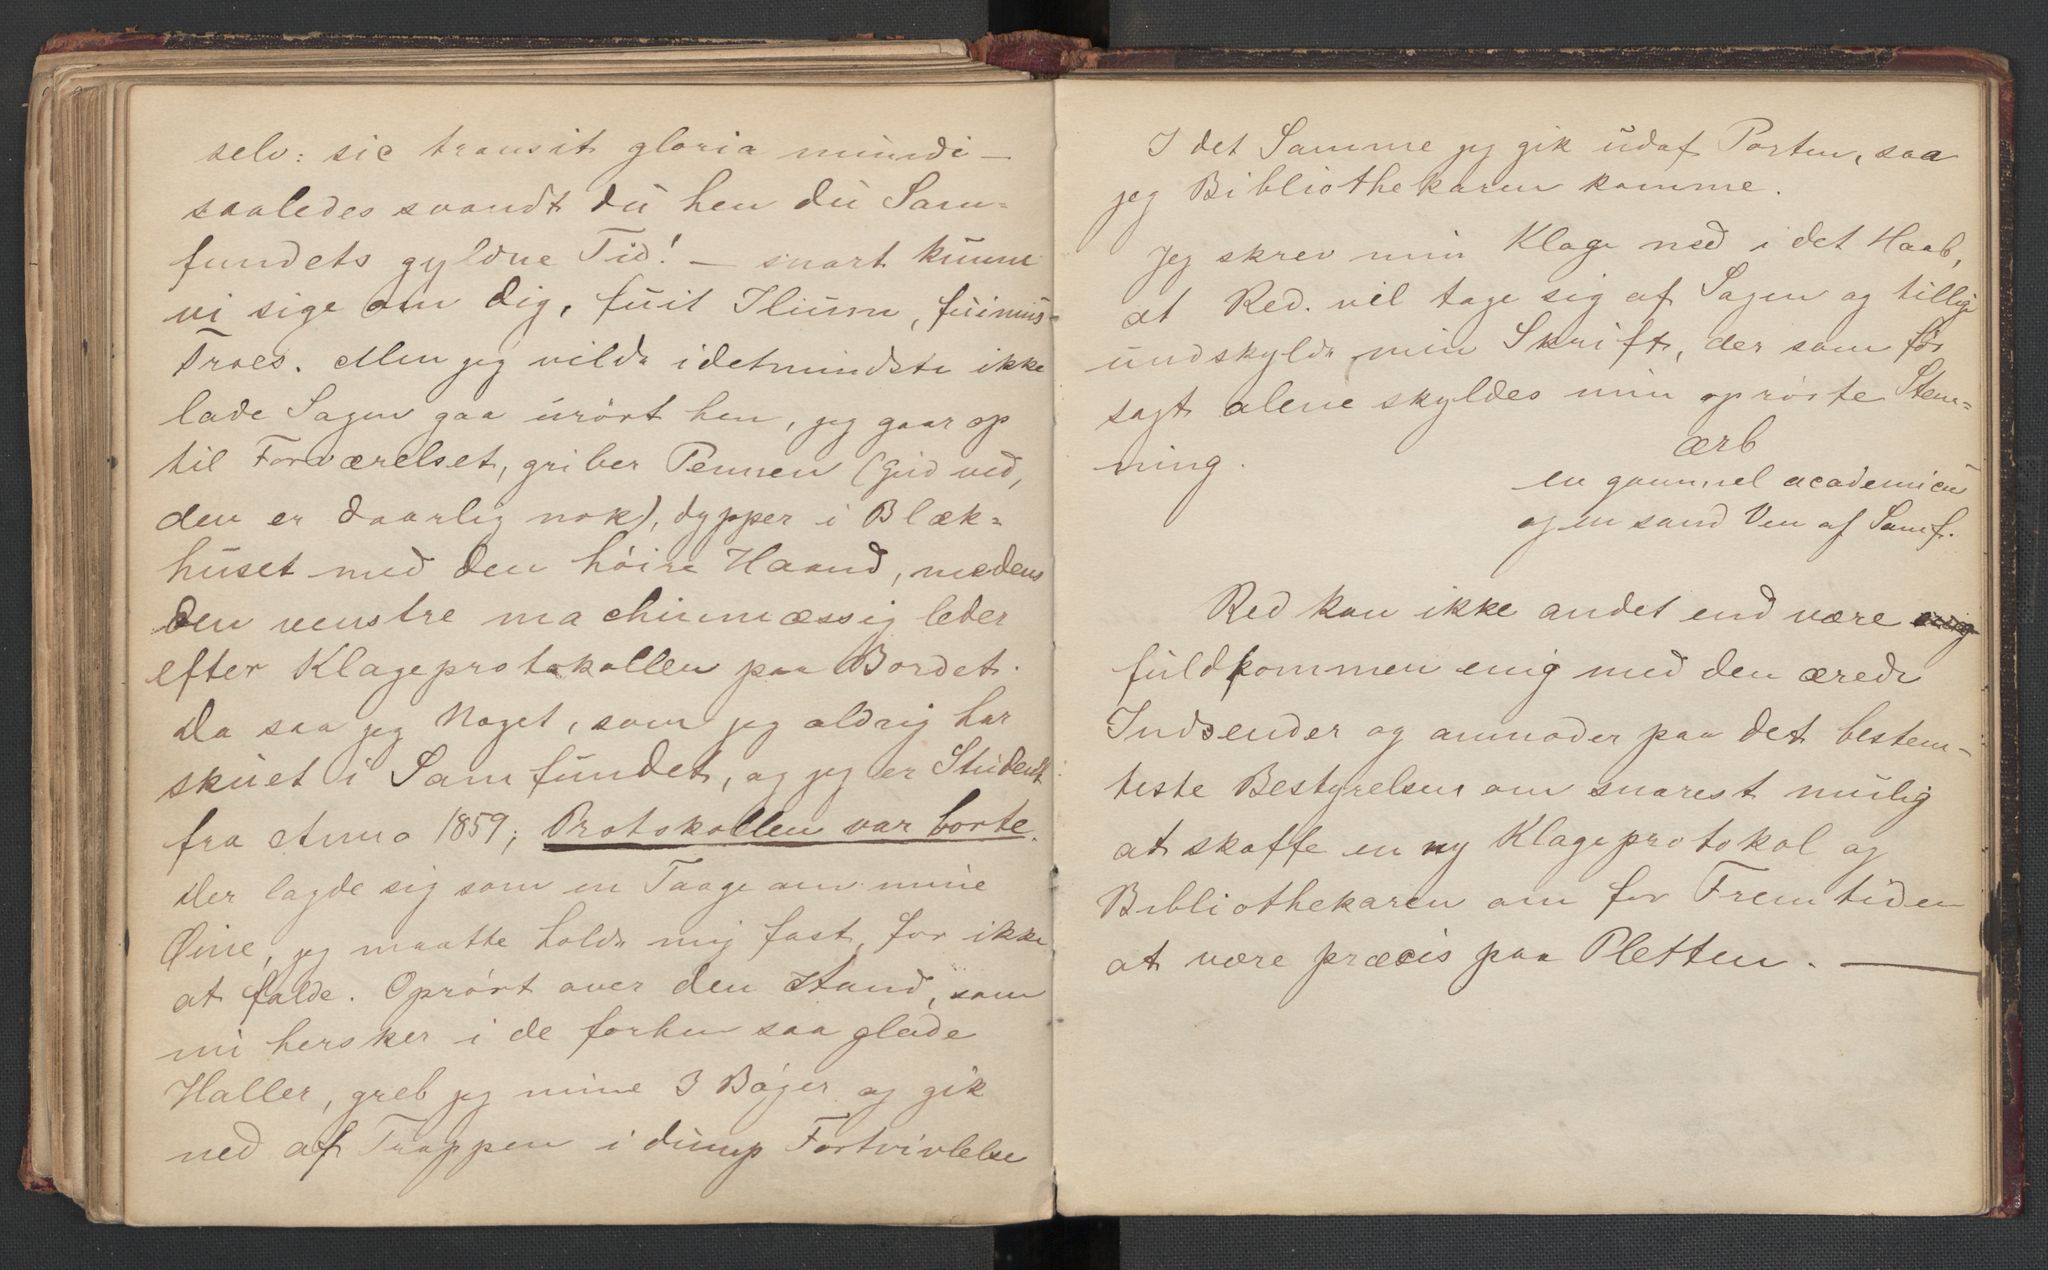 selv: sic transit gloria mundi –
saaledes svandt du hen du Sam-
fundets gyldne Tid! – snart kunne
vi sige om dig, fuit Ilium, fuimus
Troes. Men jeg vilde idetmindste ikke
lade Sagen gaa urört hen, jeg gaar op
til Forværelset, griber Pennen (Gud ved,
den er daarlig nok), dypper i Blæk-
huset med den höire Haand, medens
den venstre machinmæssig leder
efter Klageprotokollen paa Bordet.
Da saa jeg Noget, som jeg aldrig har
skuet i Samfundet, og jeg er Student
fra Anno 1859; Protokollen var borte.
Der lagde sig som en Taage om mine
Øine, jeg maatte holde mig fast, for ikke
at falde. Oprört over den Stand, som
nu hersker i de forhen saa glade
Haller, greb jeg mine 3 Böger og gik
ned af Trappen i dump Fortvivlelse
I det Samme jeg gik ud af Porten, saa
jeg Bibliothekaren komme.
Jeg skrev min Klage ned i det Haab,
at Red. vil tage sig af Sagen og tillige
undskylde min Skrift, der som för
sagt alene skyldes min oprörte Stem-
ning.
ærb
en gammel academicus
og en sand Ven af Samf.
Red kan ikke andet end være enig
fuldkommen enig med den ærede
Indsender og anmoder paa det bestem-
teste Bestyrelsen om snarest mulig
at skaffe en ny Klageprotokol og
Bibliothekaren om for Fremtiden
at være præcis paa Pletten. —